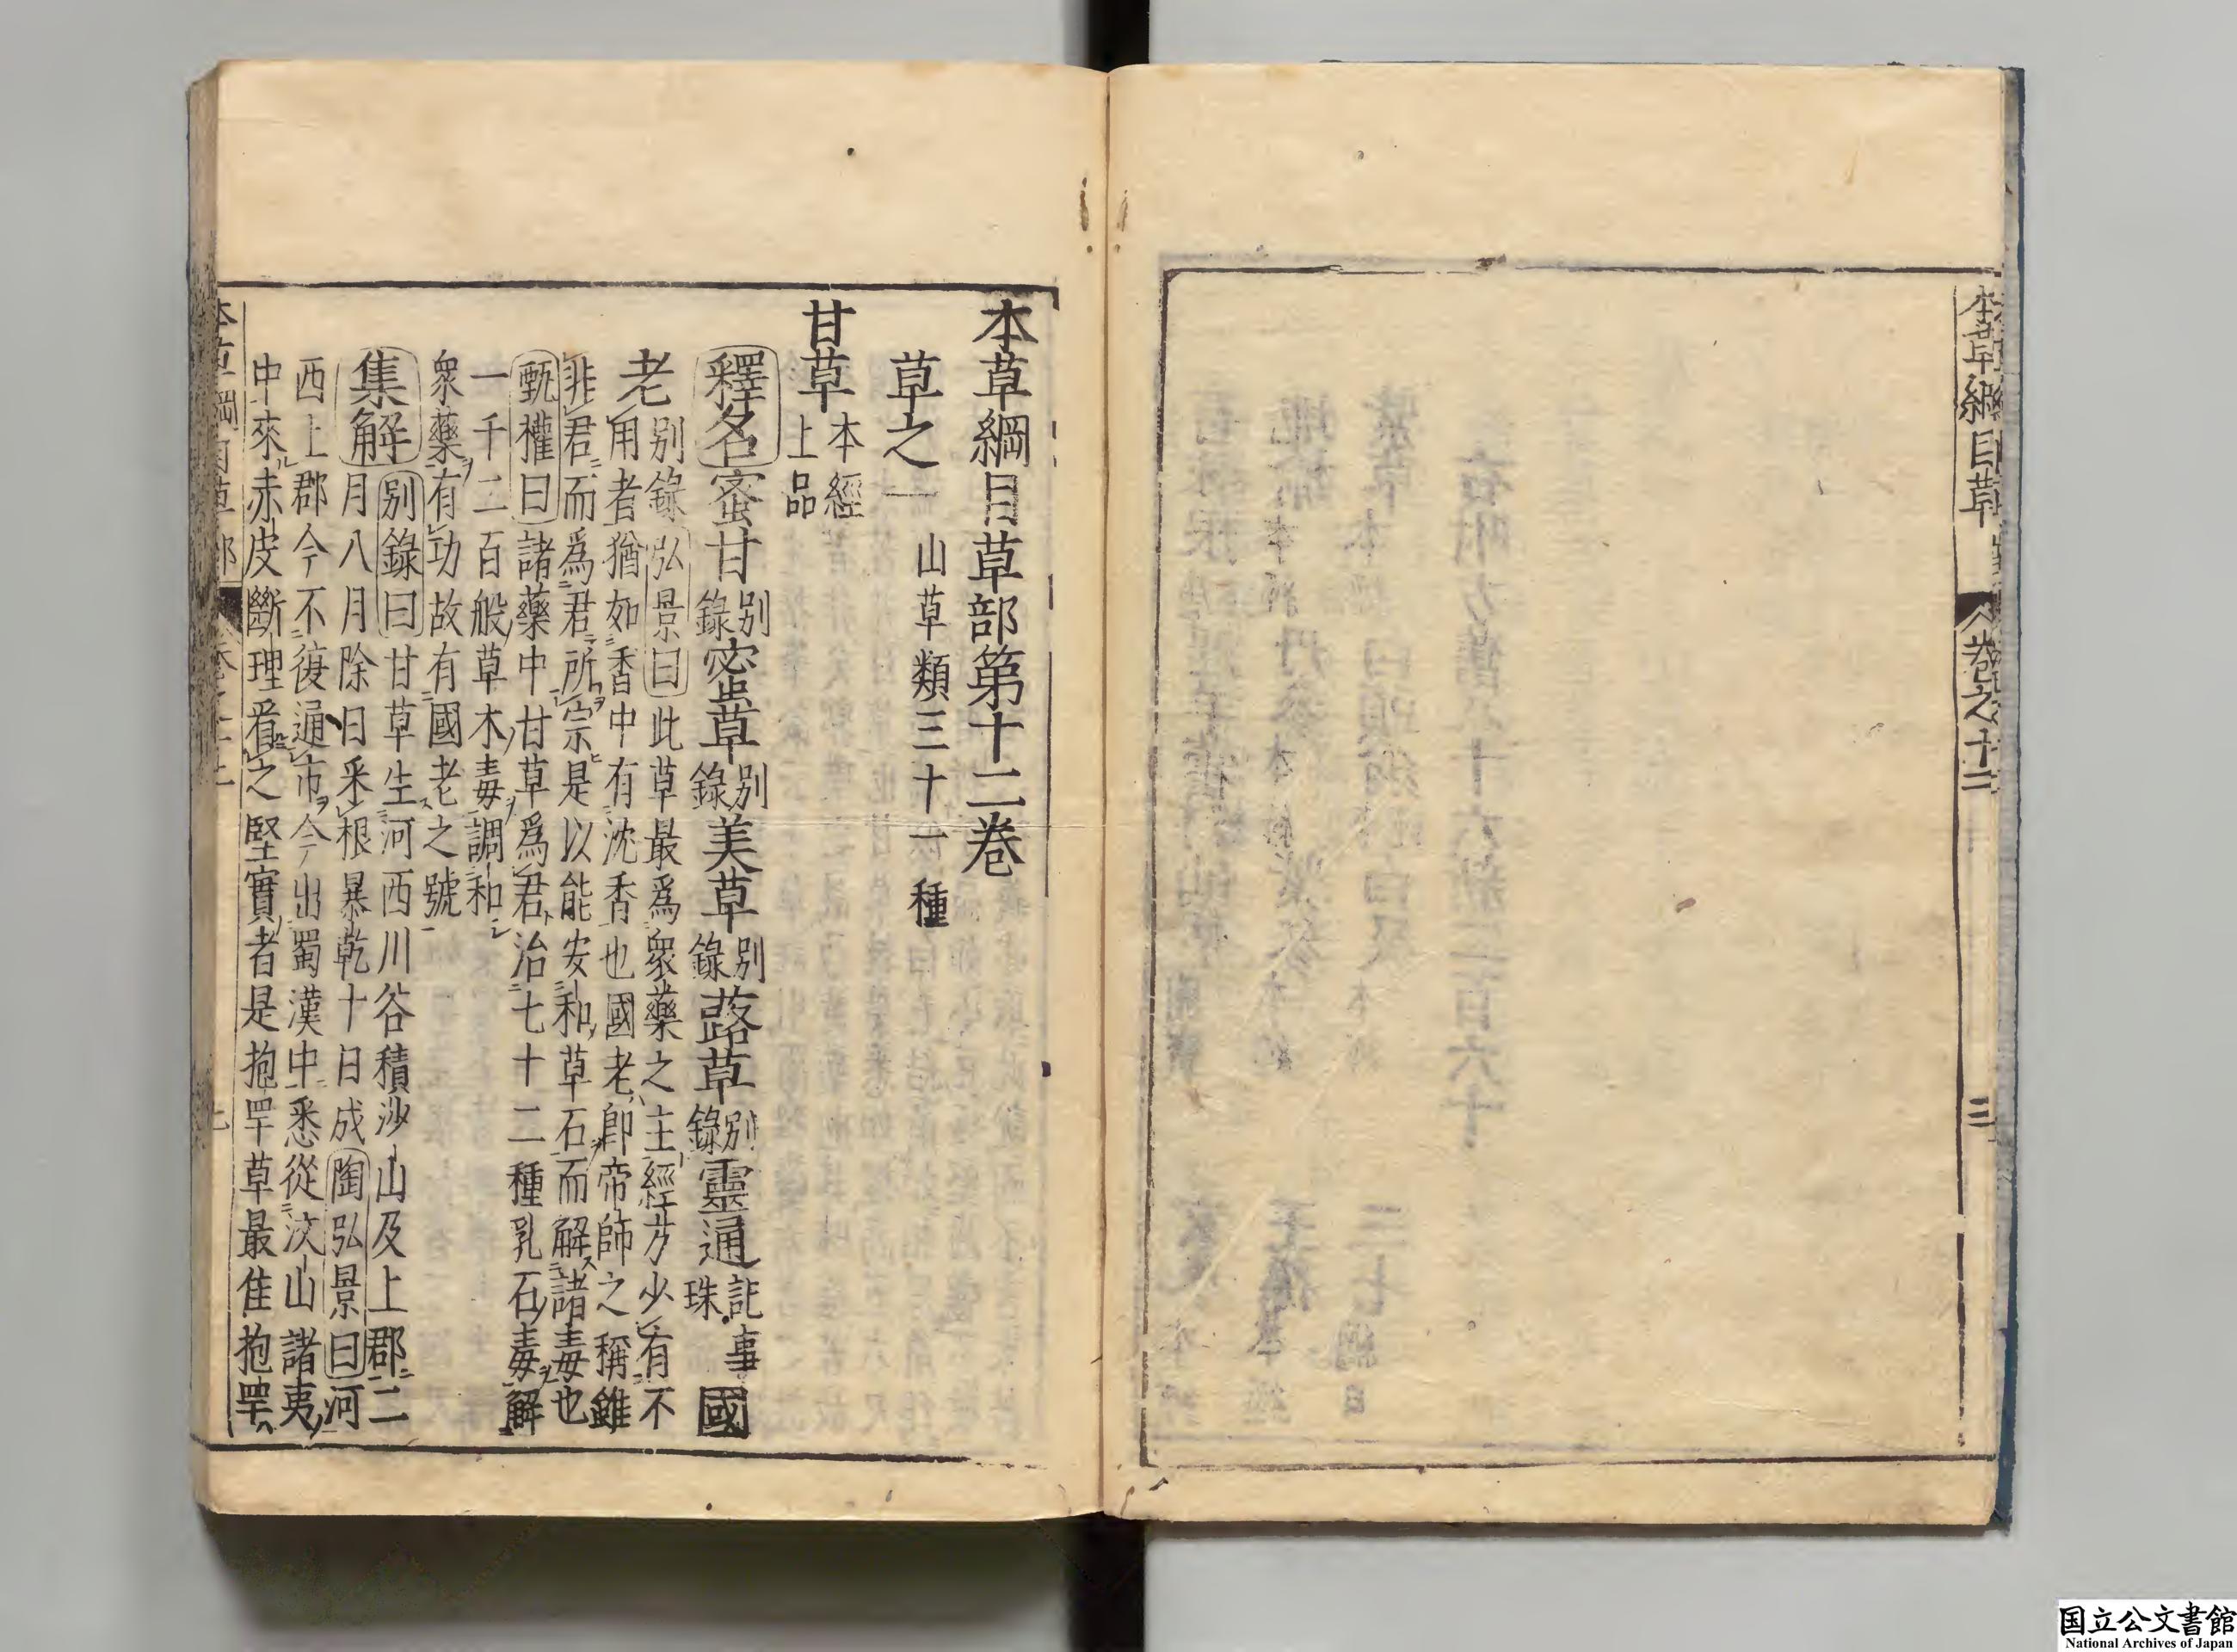 本草綱目草
卷之十二
三
本草綱目草部第十二卷
草之一 山草類三十一種
甘草 本經上品
釋名 蜜甘 別錄 蜜草 別錄 美草 別錄 蕗草 別錄 靈通 記事珠 國
老 別錄 弘景曰此草最爲衆藥之主經方少有不
用者猶如香中有沈香也國老卽帝師之稱雖
非君而爲君所宗是以能安和草石而解諸毒也
甄權曰諸藥中甘草爲君治七十二種乳石毒解
一千二百般草木毒調和
衆藥有功故有國老之號
集解 別錄曰甘草生河西川谷積沙山及上郡二
月八月除日采根暴乾十日成 陶弘景曰河
西上郡今不復通市今出蜀漢中悉從汶山諸夷
中來赤皮斷理看之堅實者是抱罕草最佳抱罕
国立公文書館
National Archives of Japan